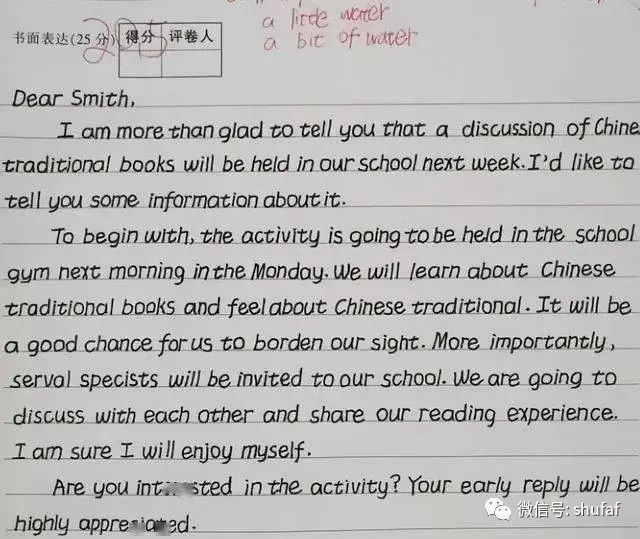 a little water
a bit of water
书面表达(25分) 得分 评卷人
Dear Smith,
I am more than glad to tell you that a discussion of Chine
traditional books will be held in our school next week. I'd like to
tell you some information about it.
To begin with, the activity is going to be held in the school
gym next morning in the Monday. We will learn about Chinese
traditional books and feel about Chinese traditional. It will be
a good chance for us to borden our sight. More importantly,
serval specists will be invited to our school. We are going to
discuss with each other and share our reading experience.
I am sure I will enjoy myself.
Are you in the activity? Your early reply will be
highly
微信号: shufaf